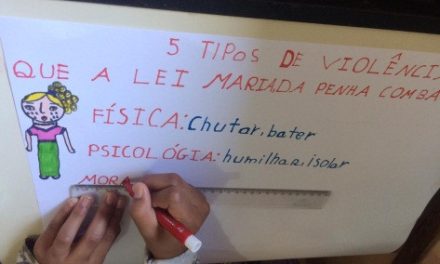 5 TIPOS DE VIOLÊNCI
QUE A LEI MARIA DA PENHA COMBA
FÍSICA: Chutar, bater
PSICOLÓGIA: humilhar, isolar
MORA